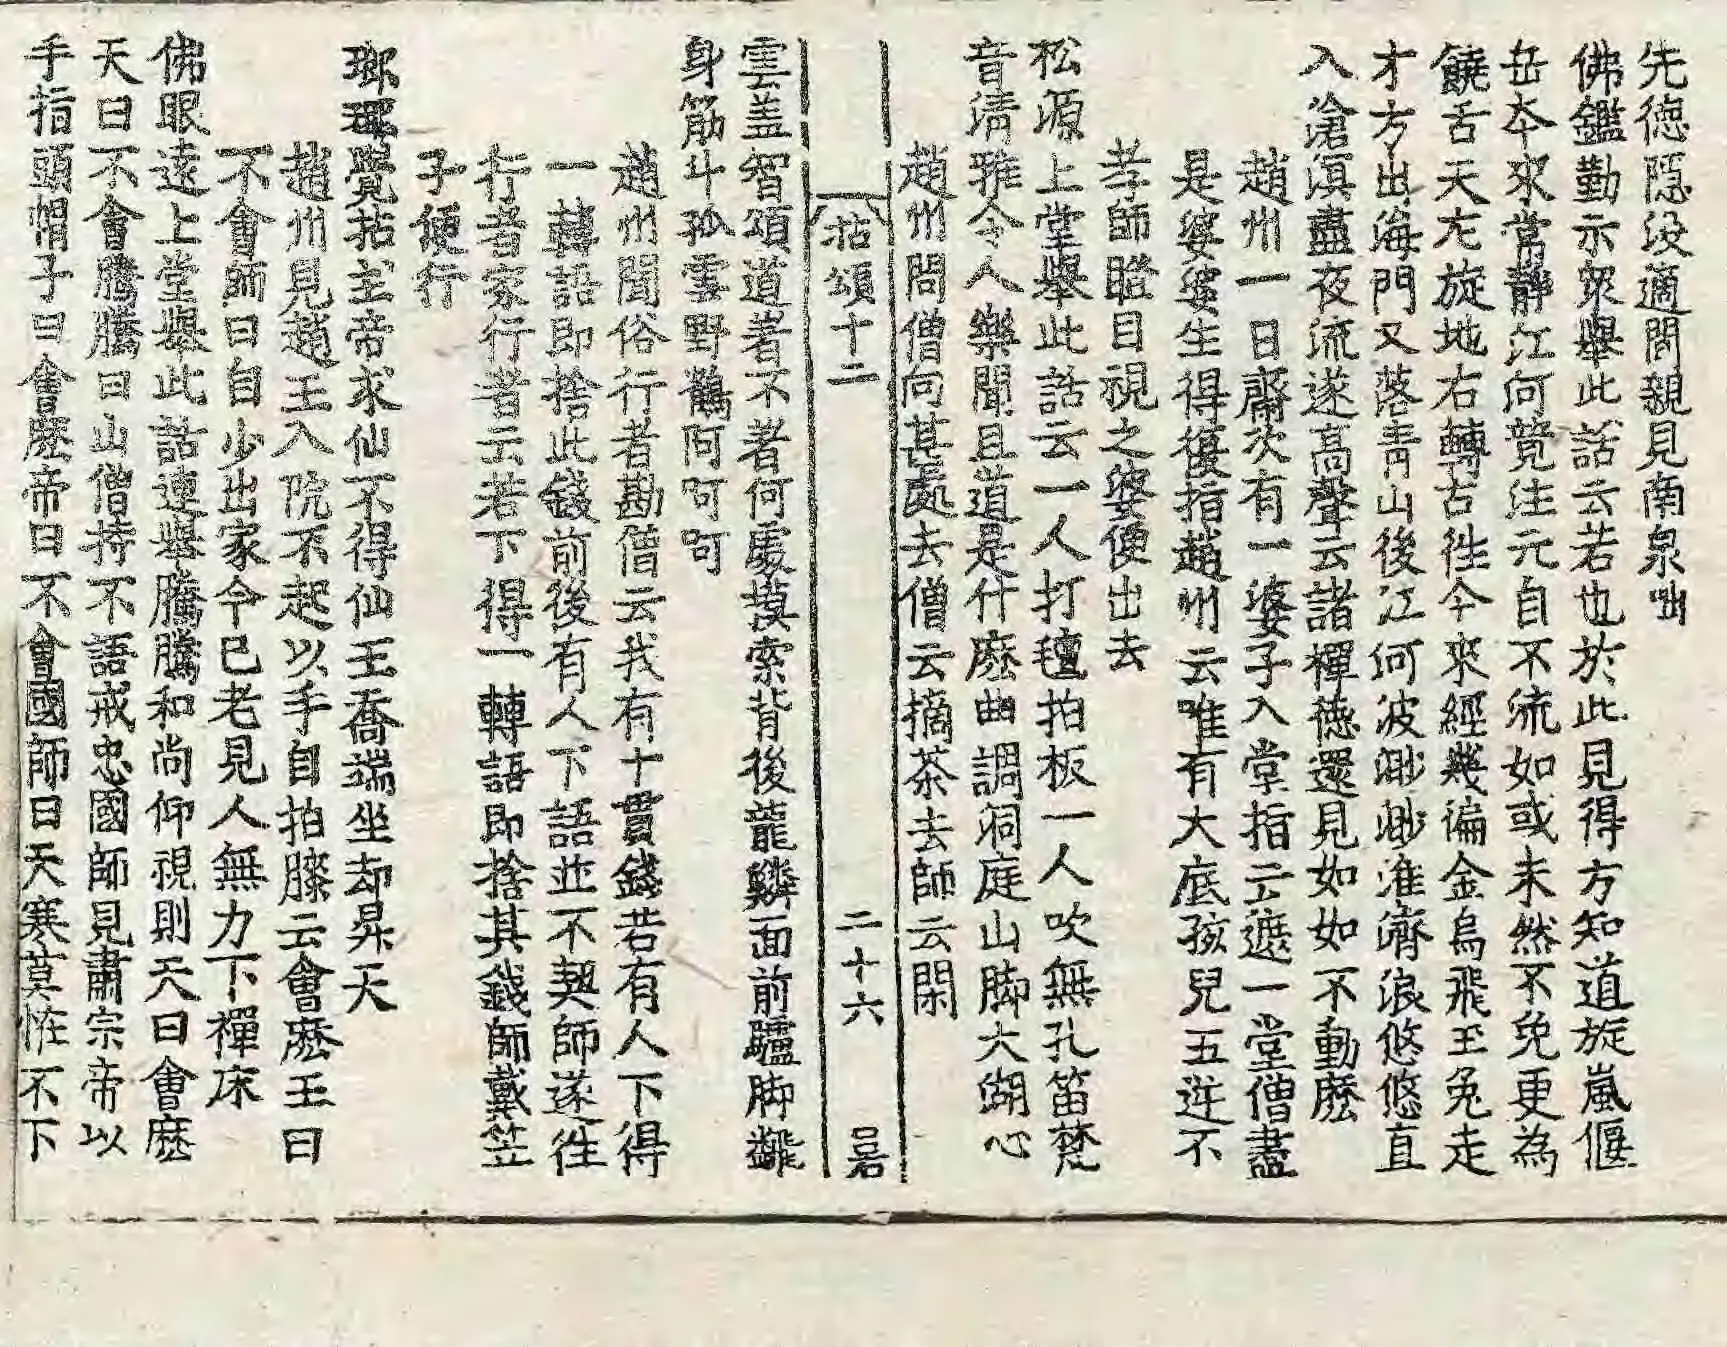 先德隱沒適間親見南泉咄
佛鑑懃示衆舉此話云若也於此見得方知道旋嵐偃
岳夲來常靜江河競注元自不流如或未然不免更為
饒舌天左旋地右轉古徃今來經幾徧金烏飛玉兔走
才方出海門又落青山後江河波渺渺淮濟浪悠悠直
入滄溟晝夜流遂高聲云諸禪德還見如如不動麽
趙州一日齋次有一婆子入堂指云遮一堂僧盡
是婆婆生得復指趙州云唯有大底孩兒五逆不
孝師瞪目視之婆便出去
松源上堂舉此話云一人打氊拍板一人吹無孔笛梵
音淸雅令人樂聞且道是什麽曲調洞庭山脚大湖心
趙州問僧向甚處去僧云摘茶去師云閑
拈頌十二 二十六 君
雲盖智頌道著不著何處摸索背後龍鱗面前驢脚飜
身筋斗孤雲野鶴阿呵呵
趙州聞俗行者勘僧云我有十貫錢若有人下得
一轉語即捨此錢前後有人下語並不契師遂徃
行者家行者云若下得一轉語即捨其錢師戴笠
子便行
瑯瑘覺拈主帝求仙不得仙王喬端坐却昇天
趙州見趙王入院不起以手自拍膝云會麽王曰
不會師曰自少出家今已老見人無力下禪床
佛眼遠上堂舉此話連舉騰騰和尚仰視則天曰會麽
天曰不會騰騰曰山僧持不語戒忠國師見肅宗帝以
手指頭帽子曰會麽帝曰不會國師曰天寒莫恠不下